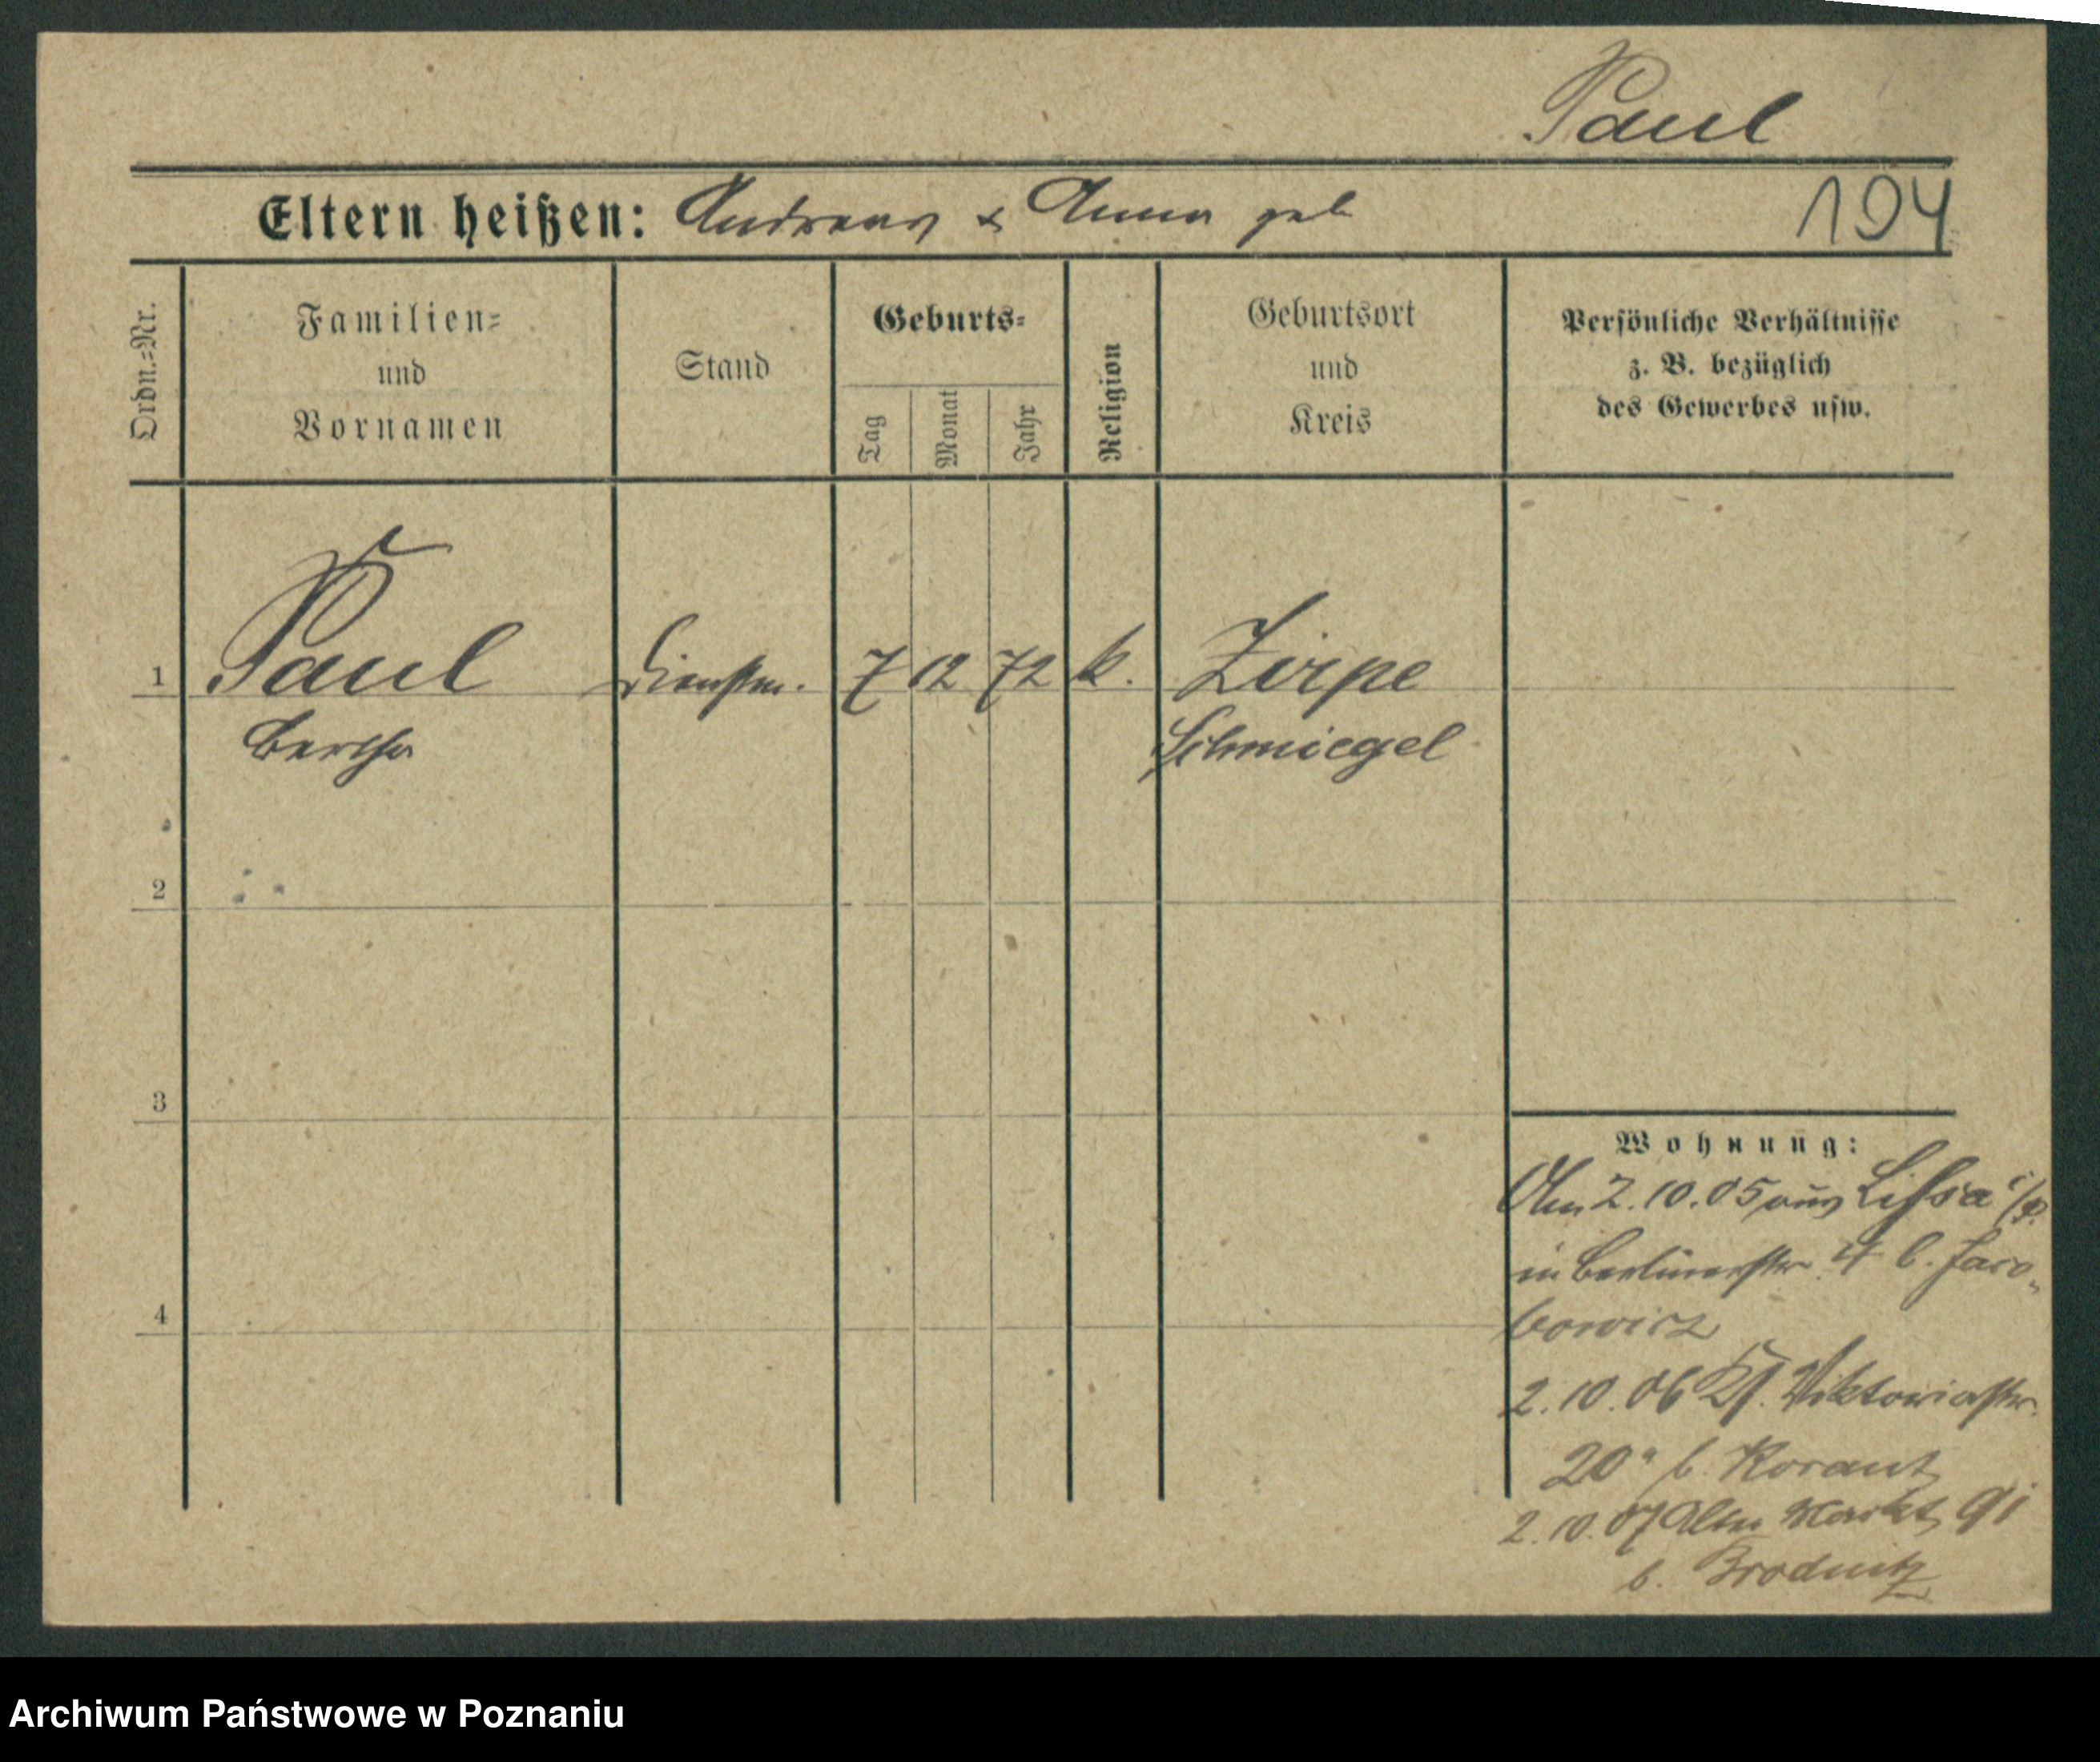 Paul
Eltern heißen: Andreas & Anna geb
194
Ordn.=Nr.
Familien=
und
Vornamen
Stand
Geburts=
Tag
Monat
Jahr
Religion
Geburtsort
und
Kreis
Persönliche Verhältnisse
z. B. bezüglich
des Gewerbes usw.
1 Paul Dienstm. 7 12 72 k. Zirpe
Bertha Schmiegel
2
3
4
Wohnung:
Am 2.10.05 aus Lissa i/P.
in Berlinerstr. 4 b. Jaco-
bowicz
2.10.06 Viktoriastr.
20a b. Korant
2.10.07 Alter Markt 91
b. Brodnitz
Archiwum Państwowe w Poznaniu